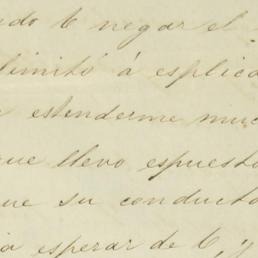 do te negar el
limitó á esplica
estenderme muc
que llevo espuesto
que su conducta
esperar de te, y